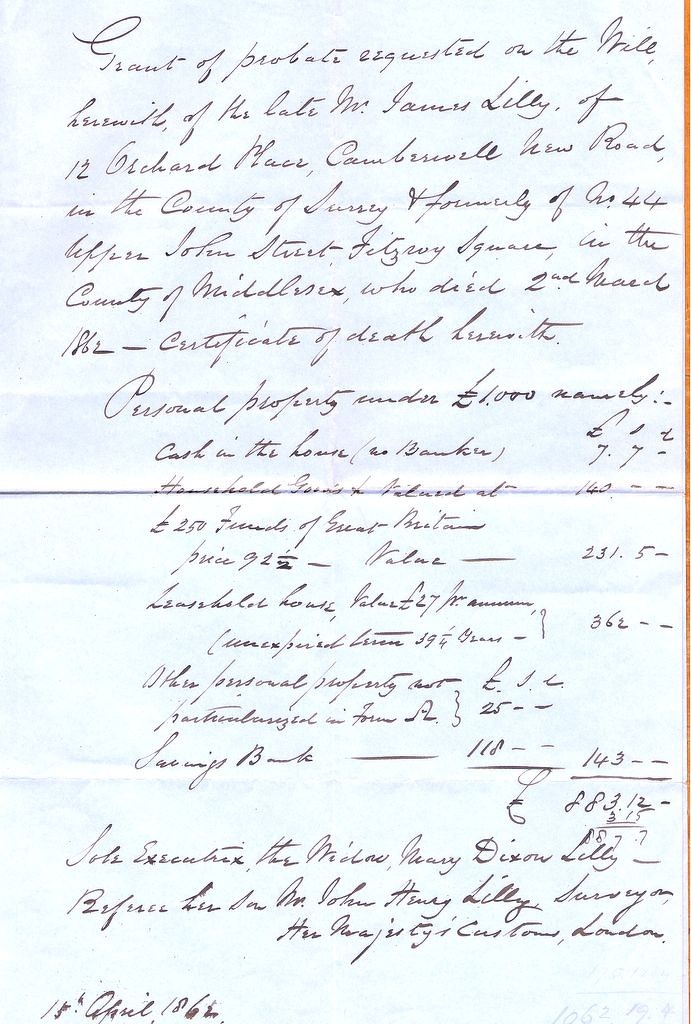 Grant of probate requested on the Will,
herewith, of the late Mr. James Lilly, of
12 Orchard Place, Camberwell New Road,
in the County of Surrey & formerly of No. 44
Upper John Street, Fitzroy Square, in the
County of Middlesex, who died 2nd March
1862 — Certificate of death herewith.
Personal property under £1.000 namely:-
£ s d
Cash in the house (no Banker) 7. 7 -
Household Goods &c Valued at 140. - -
£250 Funds of Great Britain
price 92½ — Value — 231. 5 -
Leasehold house, Value £27 pr. annum,
(unexpired term 39¼ Years - } 362 - -
Other personal property not £. s. d.
particularized in Form A. } 25 - -
Savings Bank — 118 - - 143 - -
£ 883.12 -
3.15
887.7
Sole Executrix, the Widow, Mary Dixon Lilly —
Referee her son Mr. John Henry Lilly, Surveyor,
Her Majesty's Customs, London.
15th April, 1862.
1062 19.4